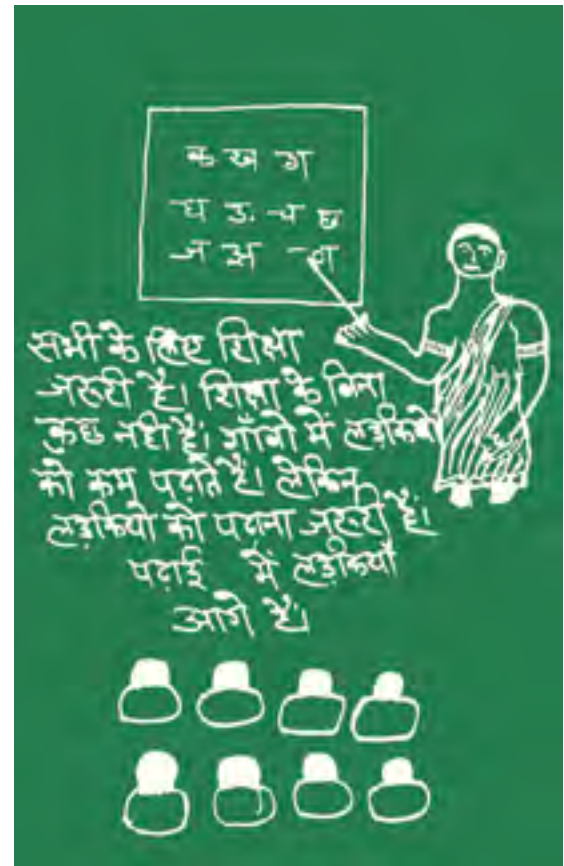 क ख ग
घ ङ च छ
ज झ ञ
सभी के लिए शिक्षा
जरुरी है। शिक्षा के बिना
कुछ नही है। गाँगो में लड़कियो
को कम पढ़ाते है। लेकिन
लड़कियो को पढना जरुरी है।
पढाई में लड़कियाँ
आगे है।